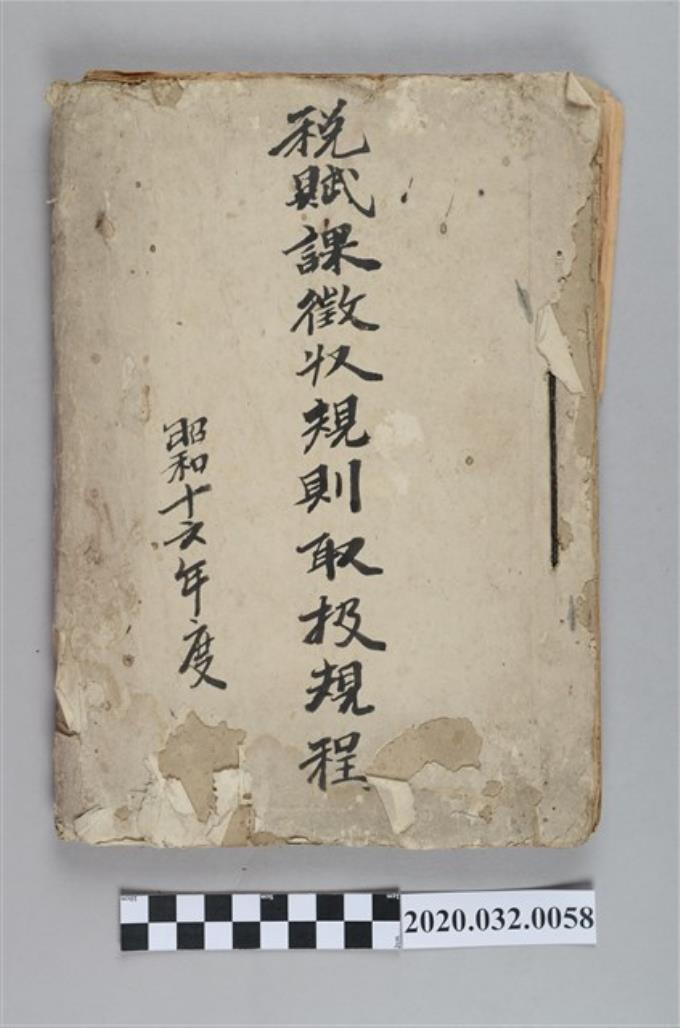 税賦課徵収規則取扱規程
昭和十六年度
2020.032.0058